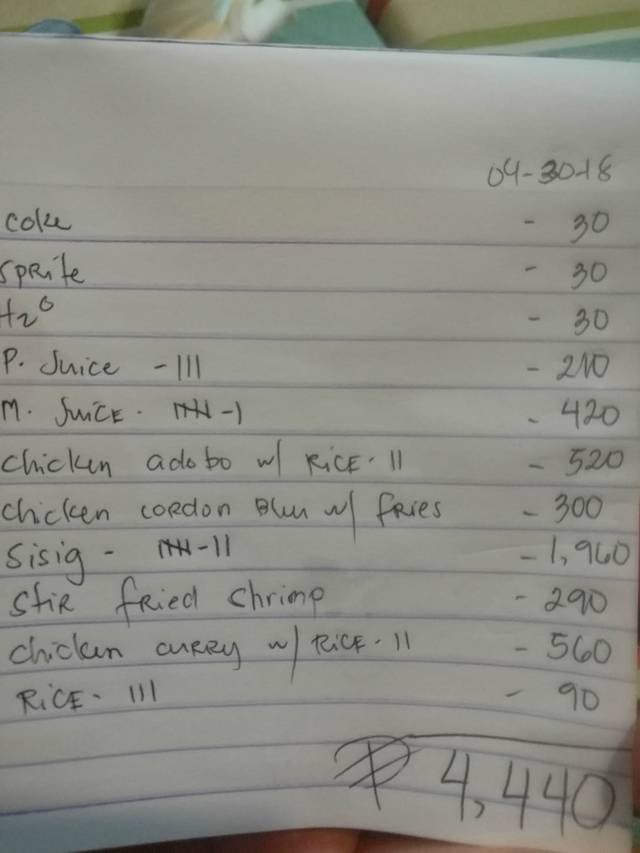 04-30-18
coke - 30
SPRite - 30
H2O - 30
P. Juice - III - 210
M. JuiCE. IIII - I - 420
chicken adobo w/ RiCE. II - 520
chicken cordon Bleu w/ fRies - 300
Sisig - IIII - II - 1,960
Stir fried Shrimp - 290
chicken cuRRy w/ RiCE. II - 560
RiCE - III - 90
₱ 4,440